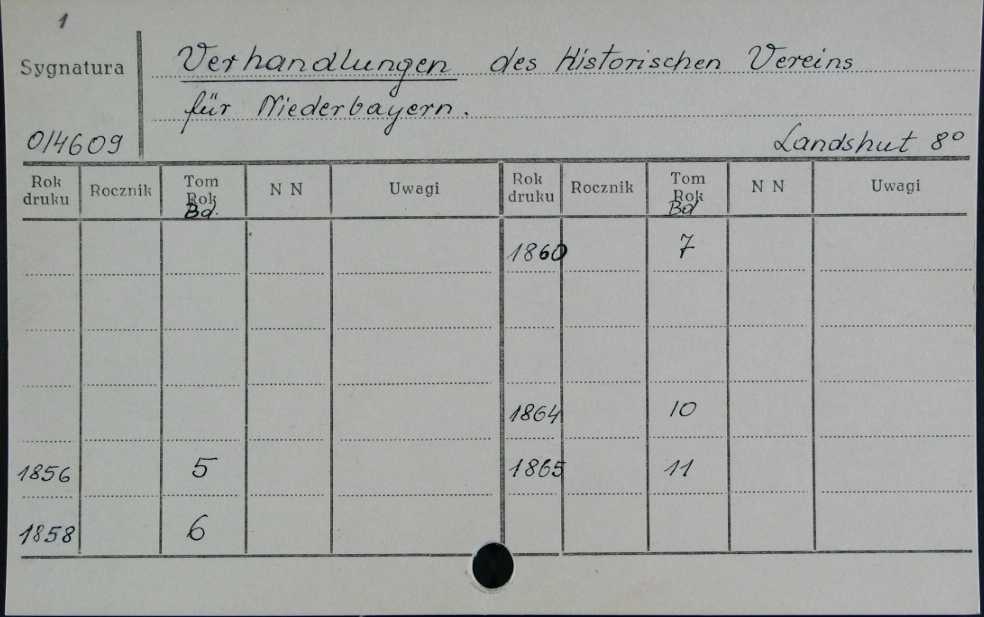 1
Sygnatura Verhandlungen des Historischen Vereins
für Niederbayern.
0/4609 Landshut 8°
Rok druku Rocznik Tom Rok Bd. N N Uwagi Rok druku Rocznik Tom Rok Bd N N Uwagi
1860 7
1864 10
1856 5 1865 11
1858 6